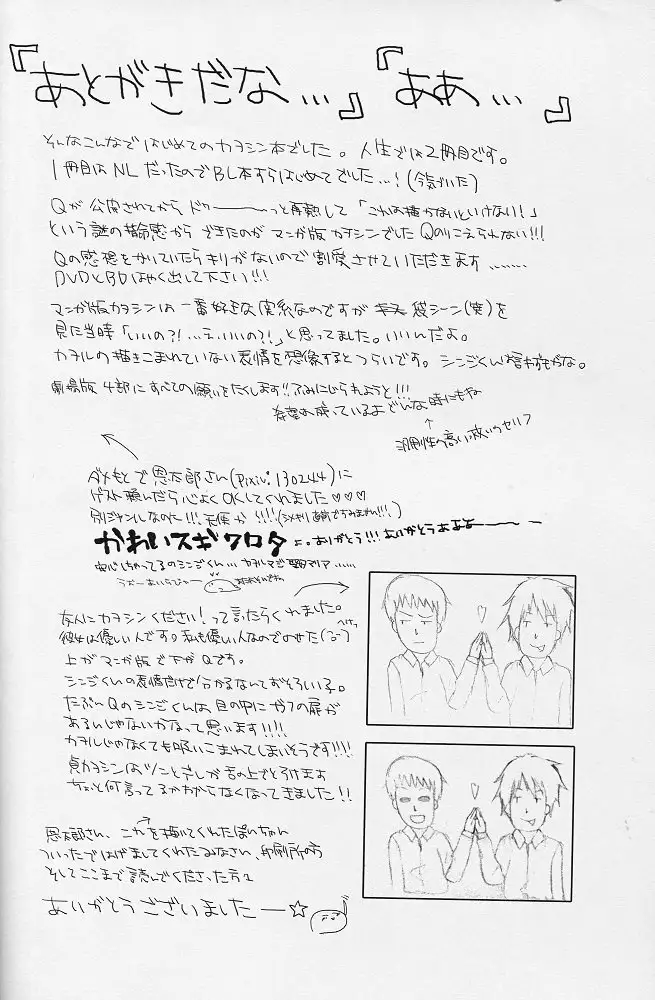 『あとがきだな…』『ああ…』
そんなこんなではじめてのカヲシン本でした。人生では2冊目です。
1冊目はNLだったのでBL本すらはじめてでした…！(今気づいた)
Qが公開されてからドカーーーーっと再熱して「これは描かないといけない！」
という謎の指令感からできたのがマンガ版カヲシンでしたQのりこえられない!!!
Qの感想をかいていたらキリがないので割愛させていただきます……
DVDとBDはやく出して下さい!!!
マンガ版カヲシンは一番好きな関係なのですがキス袋シーン(笑)を
見た当時「いいの?!…え、いいの?!」と思ってました。いいんだよ。
カヲルの描きこまれていない表情を想像するとつらいです。シンジくん
劇場版4部にすべての願いをたくします!!ふみにじられようと!!!
希望は残っているよどんな時にもね
↑
汎用性の高い救いのセリフ
ダメもとで恩太郎さん(pixiv:130244)に
ゲスト頼んだら心よくOKしてくれました♡♡♡
別ジャンルなのに!!!天使か!!!!(シメキリ直前ですみません!!!)
かわいスギワロタ ありがとう!!!ありがとうあああーーー
安心しちゃってるのシンジくん…カヲルマジ聖母マリア……
友人にカヲシンください！って言ったらくれました。
彼女は優しい人です。私も優しい人なのでのせた
上がマンガ版で下がQです。
シンジくんの表情だけで分かるなんておそろしい子。
たぶんQのシンジくんは目の中にガフの扉が
あるんじゃないかなって思います!!!!
カヲルじゃなくても吸いこまれてしまいそうです!!!!
貞カヲシンはツンとデレが舌の上でとろけます
ちょっと何言ってるかわからなくなってきました!!
恩太郎さん、これを描いてくれたぽいちゃん
ついったではげましてくれたみなさん、印刷所の方
そしてここまで読んでくださった方々
ありがとうございましたー☆